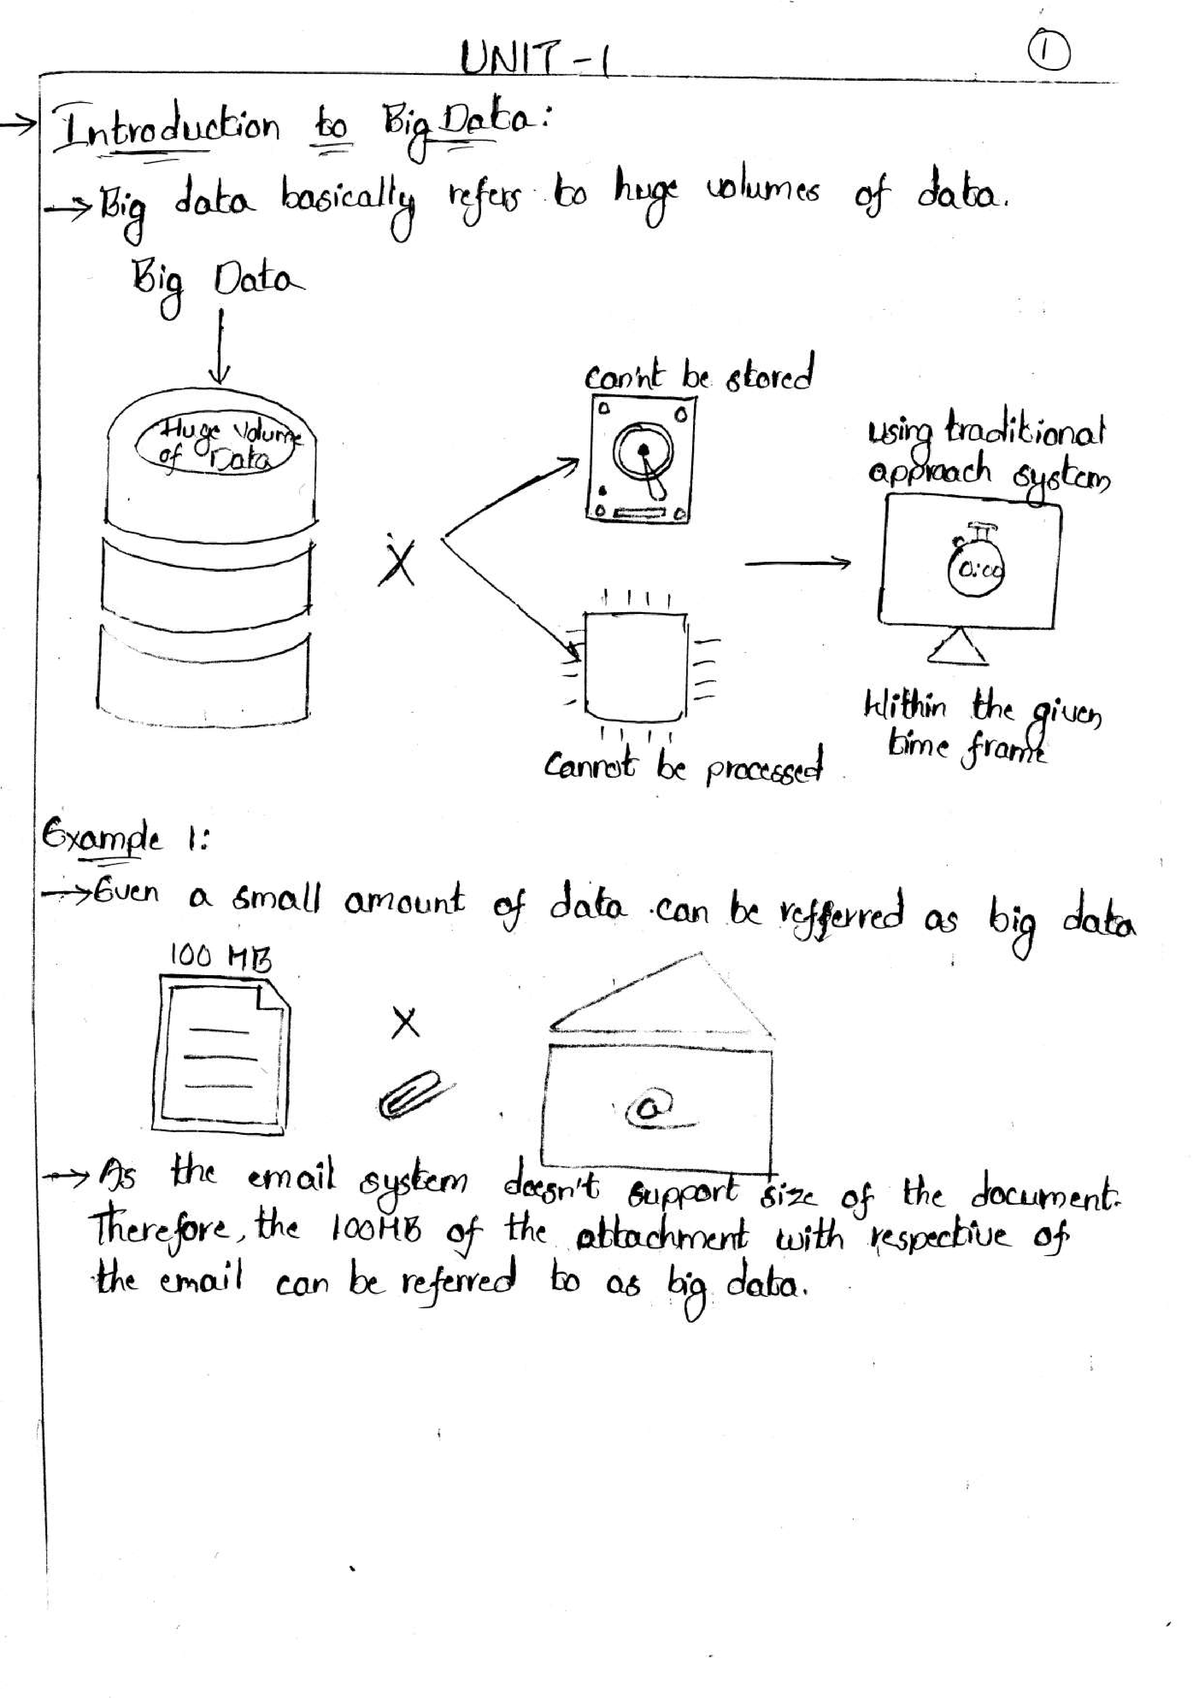 UNIT-1
1
→ Introduction to Big Data:
→ Big data basically refers to huge volumes of data.
Big Data
Huge Volume
of Data
X
can'nt be stored
using traditional
approach system
0:00
Within the given
time frame
Cannot be processed
Example 1:
→ Even a small amount of data can be refferred as big data
100 MB
X
@
→ As the email system doesn't support size of the document.
Therefore, the 100MB of the attachment with respective of
the email can be referred to as big data.